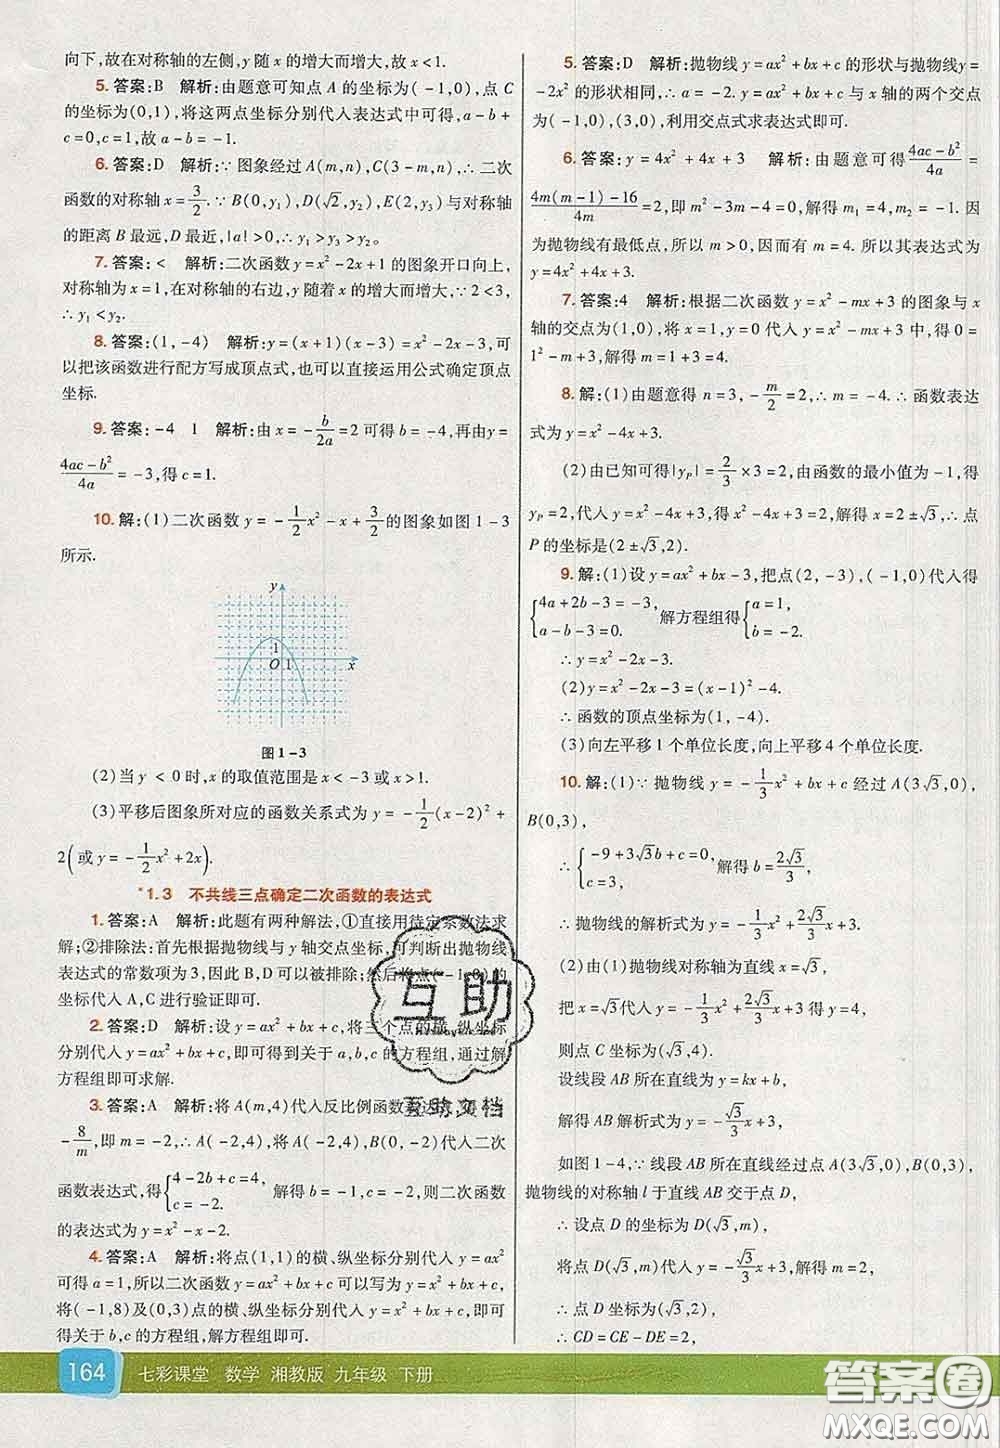 向下,故在对称轴的左侧,y 随 x 的增大而增大,故 x<1.
5. 答案:B 解析:由题意可知点 A 的坐标为(-1,0),点 C
的坐标为(0,1),将这两点坐标分别代入表达式中可得,a-b+
c=0,c=1,故 a-b=-1.
6. 答案:D 解析:∵图象经过 A(m,n),C(3-m,n),∴二次
函数的对称轴 x=3/2.∵B(0,y₁),D(√2,y₂),E(2,y₃)与对称轴
的距离 B 最远,D 最近,|a|>0,∴y₁>y₃>y₂。
7. 答案:< 解析:二次函数 y=x²-2x+1 的图象开口向上,
对称轴为 x=1,在对称轴的右边,y 随着 x 的增大而增大,∵2<3,
∴y₁<y₂.
8. 答案:(1,-4) 解析:y=(x+1)(x-3)=x²-2x-3,可
以把该函数进行配方写成顶点式,也可以直接运用公式确定顶点
坐标.
9. 答案:-4 1 解析:由 x=-b/2a=2 可得 b=-4,再由y=
(4ac-b²)/4a=-3,得 c=1.
10. 解:(1)二次函数 y=-1/2x²-x+3/2的图象如图 1-3
所示.
y
1
O 1 x
图 1-3
(2)当 y <0 时,x 的取值范围是 x<-3 或 x>1.
(3)平移后图象所对应的函数关系式为 y=-1/2(x-2)²+
2(或 y=-1/2x²+2x).
*1.3 不共线三点确定二次函数的表达式
1. 答案:A 解析:此题有两种解法,①直接用待定系数法求
解;②排除法:首先根据抛物线与 y 轴交点坐标,可判断出抛物线
表达式的常数项为 3,因此 B,D 可以被排除;然后将点(-1,8)的
坐标代入 A,C 进行验证即可.
2. 答案:D 解析:设 y=ax²+bx+c,将三个点的横、纵坐标
分别代入 y=ax²+bx+c,即可得到关于 a,b,c 的方程组,通过解
方程组即可求解.
3. 答案:A 解析:将 A(m,4)代入反比例函数表达式,得 4=
-8/m,即 m=-2,∴A(-2,4),将 A(-2,4),B(0,-2)代入二次
函数表达式,得{4-2b+c=4, c=-2. 解得 b=-1,c=-2,则二次函数
的表达式为 y=x²-x-2.
4. 答案:A 解析:将点(1,1)的横、纵坐标分别代入 y=ax²
可得 a=1,所以二次函数 y=ax²+bx+c 可以写为 y=x²+bx+c,
将(-1,8)及(0,3)点的横、纵坐标分别代入 y=x²+bx+c,即可
得关于 b,c 的方程组,解方程组即可.
5. 答案:D 解析:抛物线 y=ax²+bx+c 的形状与抛物线y=
-2x² 的形状相同,∴a=-2. y=ax²+bx+c 与 x 轴的两个交点
为(-1,0),(3,0),利用交点式求表达式即可.
6. 答案:y=4x²+4x+3 解析:由题意可得(4ac-b²)/4a=
(4m(m-1)-16)/4m=2,即 m²-3m-4=0,解得 m₁=4,m₂=-1.因
为抛物线有最低点,所以 m>0,所以 m=4.所以其表达式为
y=4x²+4x+3.
7. 答案:4 解析:根据二次函数 y=x²-mx+3 的图象与 x
轴的交点为(1,0),将 x=1,y=0 代入 y=x²-mx+3 中,得 0=
1²-m+3,解得 m=1+3=4.
8. 解:(1)由题意得 n=3,-m/2=2,∴m=-4.∴函数表达
式为 y=x²-4x+3.
(2)由已知可得|y_P|=2/3×3=2,由函数的最小值为-1,得
y_P=2,代入 y=x²-4x+3,得 x²-4x+3=2,解得 x=2±√3,∴点
P 的坐标是(2±√3,2).
9. 解:(1)设 y=ax²+bx-3,把点(2,-3),(-1,0)代入得
{4a+2b-3=-3, a-b-3=0. 解方程组得{a=1, b=-2.
∴y=x²-2x-3.
(2)y=x²-2x-3=(x-1)²-4.
∴函数的顶点坐标为(1,-4).
(3)向左平移 1 个单位长度,向上平移 4 个单位长度.
10. 解:(1)∵抛物线 y=-1/3x²+bx+c 经过 A(3√3,0),
B(0,3),
∴{-9+3√3b+c=0, c=3. 解得 b=2√3/3,
∴抛物线的解析式为 y=-1/3x²+2√3/3x+3.
(2)由(1)抛物线对称轴为直线 x=√3,
把 x=√3代入 y=-1/3x²+2√3/3x+3 得 y=4,
则点 C 坐标为(√3,4).
设线段 AB 所在直线为 y=kx+b,
解得 AB 解析式为 y=-√3/3x+3,
如图 1-4,∵线段 AB 所在直线经过点 A(3√3,0),B(0,3),
抛物线的对称轴 l 于直线 AB 交于点 D,
∴设点 D 的坐标为 D(√3,m),
将点 D(√3,m)代入 y=-√3/3x+3,解得 m=2,
∴点 D 坐标为(√3,2),
∴CD=CE-DE=2,
互助
互助文档
164 七彩课堂 数学 湘教版 九年级 下册
答案圈
MXQE.COM